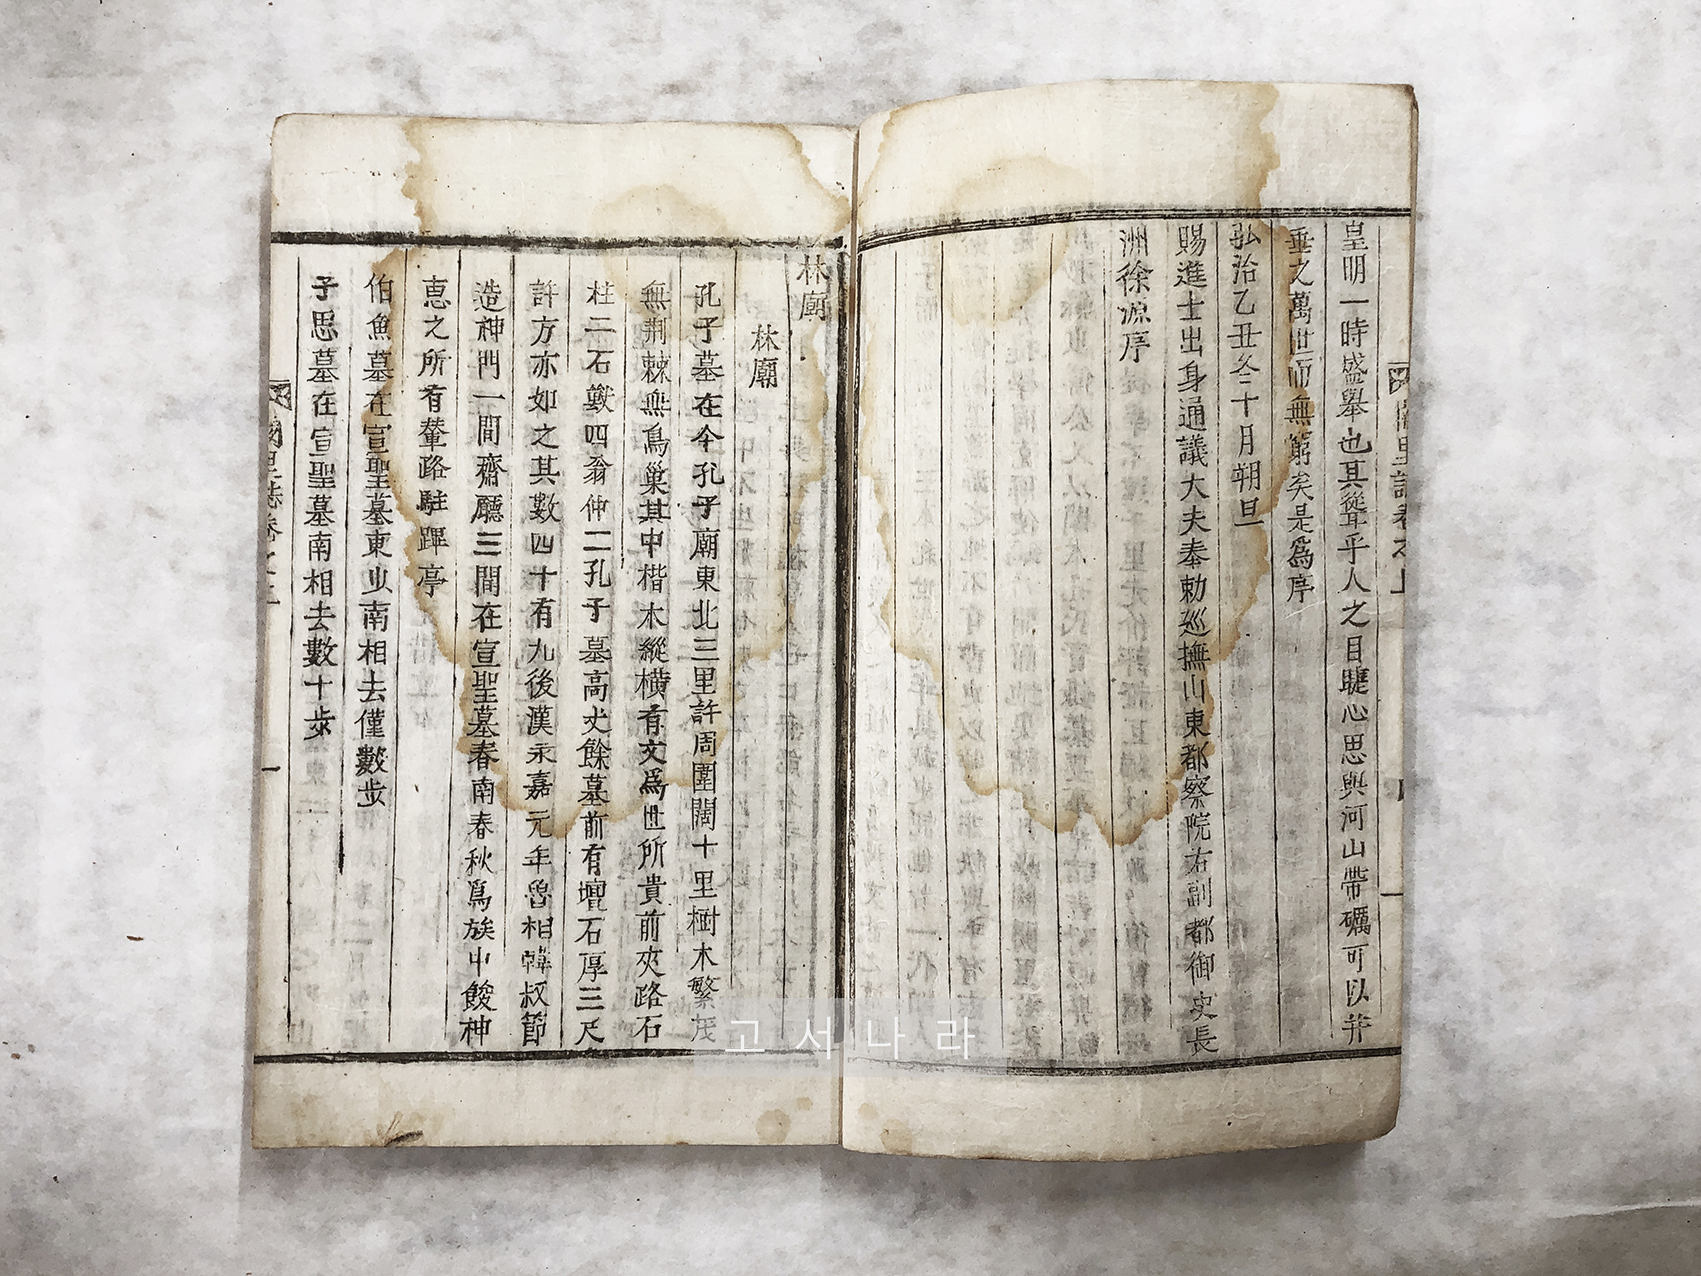 皇明一時盛擧也其聳乎人之目聽心思與河山帶礪可以幷
垂之萬世而無窮矣是爲序
弘治乙丑冬十月朔旦
賜進士出身通議大夫奉勅巡撫山東都察院右副都御史長
洲徐源序
林廟
林廟
孔子墓在今孔子廟東北三里許周圍闊十里樹木繁茂
無荆棘無鳥巢其中楷木縱橫有文爲世所貴前夾路石
柱二石獸四翁仲二孔子墓高丈餘墓前有壇石厚三尺
許方亦如之其數四十有九後漢永嘉元年魯相韓叔節
造神門一間齋廳三間在宣聖墓春南春秋爲族中餕神
惠之所有輦路駐蹕亭
伯魚墓在宣聖墓東少南相去僅數步
子思墓在宣聖墓南相去數十步
闕里誌卷之
一
고서나라